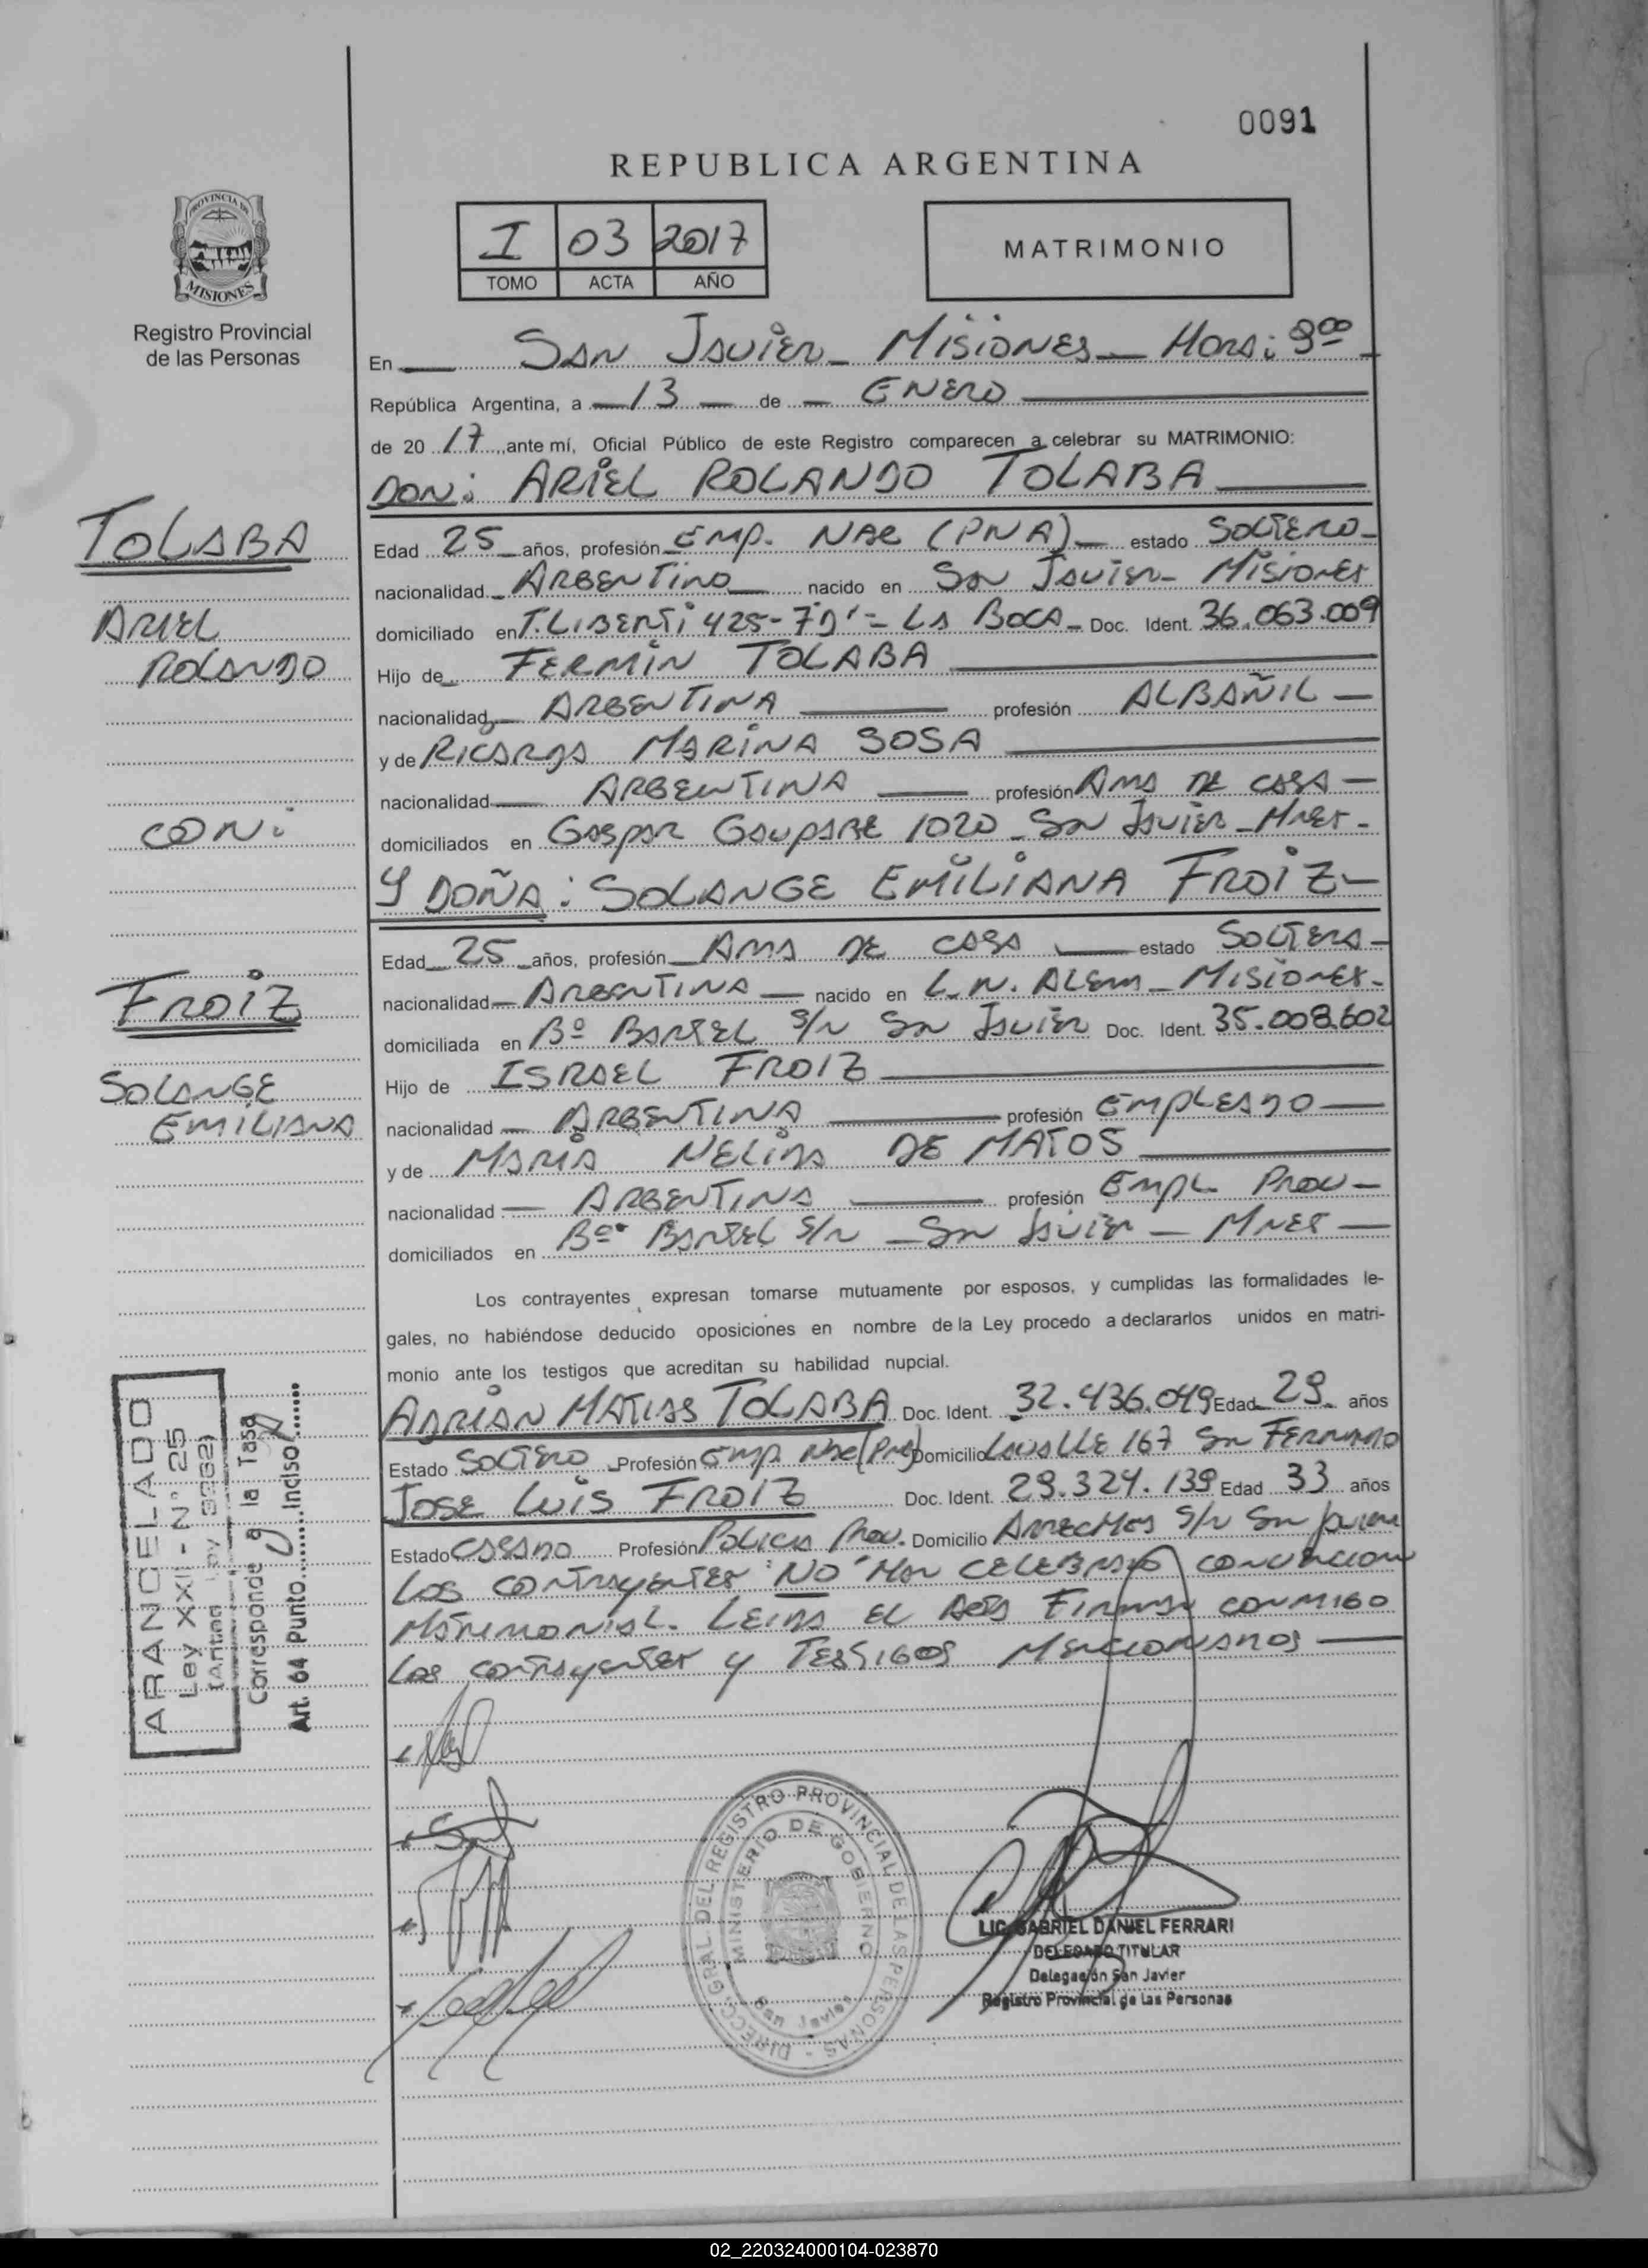 0091
REPUBLICA ARGENTINA
PROVINCIA DE MISIONES
Registro Provincial
de las Personas
I 03 2017
TOMO ACTA AÑO
MATRIMONIO
En SAN JAVIER - MISIONES - HORA: 9 00
República Argentina, a 13 de ENERO
de 20 17 ante mí, Oficial Público de este Registro comparecen a celebrar su MATRIMONIO:
DON: ARIEL ROLANDO TOLABA
TOLABA
ARIEL
ROLANDO
CON:
FROIZ
SOLANGE
EMILIANA
Edad 25 años, profesión EMP. NAC (PNA) estado SOLTERO
nacionalidad ARGENTINO nacido en SAN JAVIER - MISIONES
domiciliado en T. LIBERTI 425 - 7 D' - LA BOCA - Doc. Ident. 36.063.009
Hijo de FERMIN TOLABA
nacionalidad ARGENTINA profesión ALBAÑIL
y de RICARDA MARINA SOSA
nacionalidad ARGENTINA profesión AMA DE CASA
domiciliados en GASPAR 1020 - SAN JAVIER - MNES -
Y DOÑA: SOLANGE EMILIANA FROIZ
Edad 25 años, profesión AMA DE CASA estado SOLTERA
nacionalidad ARGENTINA nacido en L.N. ALEM - MISIONES -
domiciliada en Bº BARTEL S/N SAN JAVIER Doc. Ident. 35.008.602
Hijo de ISRAEL FROIZ
nacionalidad ARGENTINA profesión EMPLEADO
y de MARIA NELIDA DE MATOS
nacionalidad ARGENTINA profesión EMPL. PROV
domiciliados en Bº BARTEL S/N - SAN JAVIER - MNES
Los contrayentes expresan tomarse mutuamente por esposos, y cumplidas las formalidades le-
gales, no habiéndose deducido oposiciones en nombre de la Ley procedo a declararlos unidos en matri-
monio ante los testigos que acreditan su habilidad nupcial.
ADRIAN MATIAS TOLABA Doc. Ident. 32.436.049 Edad 29 años
Estado SOLTERO Profesión EMP. NAC Domicilio LAVALLE 167 SAN FERNANDO
JOSE LUIS FROIZ Doc. Ident. 29.324.139 Edad 33 años
Estado CASADO Profesión POLICIA PROV. Domicilio ARRECHEA S/N SAN JAVIER
LOS CONTRAYENTES "NO" HAN CELEBRADO CONVENCION
MATRIMONIAL. LEIDA EL ACTA FIRMAN CONMIGO
LOS CONTRAYENTES Y TESTIGOS MENCIONADOS
ARANCELADO
Ley XXI - Nº 25
(Antes Ley 3362)
Corresponde a la Tasa
Art. 64 Punto Inciso
DIRECC. GRAL. DEL REGISTRO PROVINCIAL DE LAS PERSONAS
MINISTERIO DE GOBIERNO
San Javier
LIC. GABRIEL DANIEL FERRARI
DELEGADO TITULAR
Delegación San Javier
Registro Provincial de las Personas
02_220324000104-023870